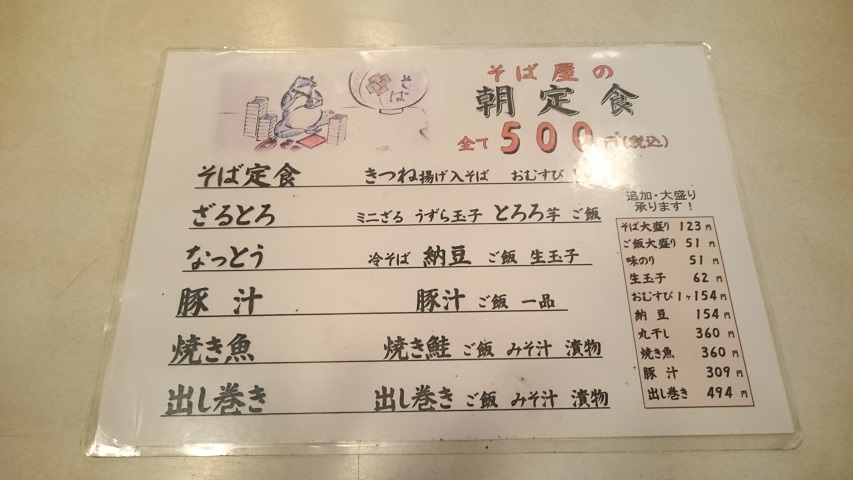 そば
そば屋の
朝定食
全て500円(税込)
そば定食 きつね揚げ入そば おむすび
ざるとろ ミニざる うずら玉子 とろろ芋 ご飯
なっとう 冷そば 納豆 ご飯 生玉子
豚汁 豚汁 ご飯 一品
焼き魚 焼き鮭 ご飯 みそ汁 漬物
出し巻き 出し巻き ご飯 みそ汁 漬物
追加・大盛り
承ります!
そば大盛り 123円
ご飯大盛り 51円
味のり 51円
生玉子 62円
おむすび1ヶ154円
納豆 154円
丸干し 360円
焼き魚 360円
豚汁 309円
出し巻き 494円